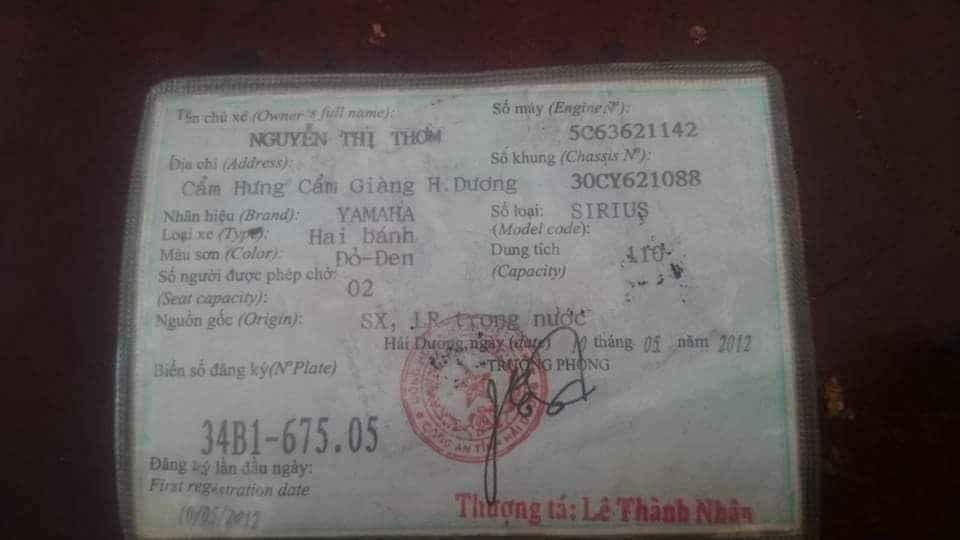 Tên chủ xe (Owner's full name):
NGUYỄN THỊ THƠM
Địa chỉ (Address):
Cẩm Hưng Cẩm Giàng H.Dương
Nhãn hiệu (Brand): YAMAHA
Loại xe (Type): Hai bánh
Màu sơn (Color): Đỏ-Đen
Số người được phép chở: 02
(Seat capacity):
Nguồn gốc (Origin): SX, LR trong nước
Số máy (Engine N°):
5C63621142
Số khung (Chassis N°):
30CY621088
Số loại: SIRIUS
(Model code):
Dung tích 110
(Capacity)
Hải Dương, ngày (date) 10 tháng 05 năm 2012
TRƯỞNG PHÒNG
Biển số đăng ký (N°Plate)
34B1-675.05
Đăng ký lần đầu ngày:
First registration date
10/05/2012
CÔNG AN TỈNH HẢI
Thượng tá: Lê Thành Nhân